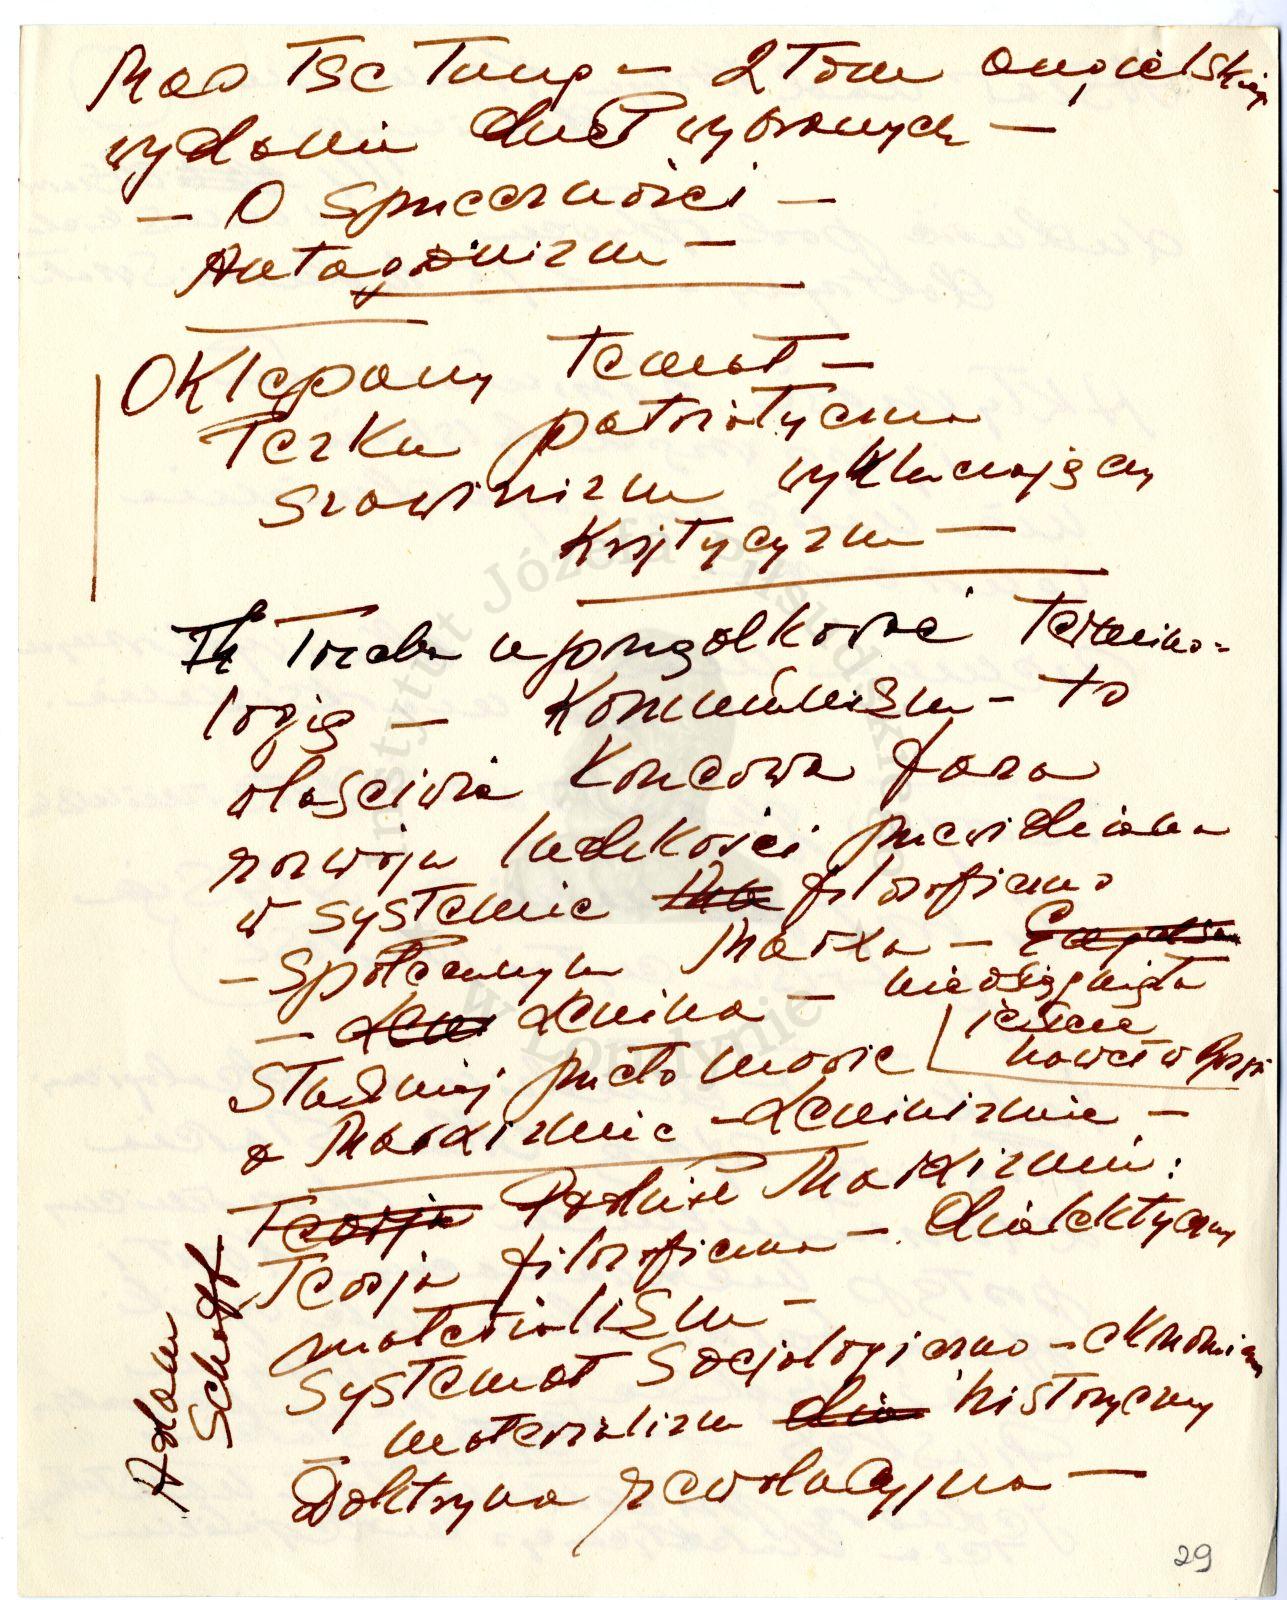 Mao Tse Tung – 2 Tom angielskiego
wydania dzieł wybranych –
– O Sprzeczności –
Antagonizm –
Oklepany temat –
Teza patriotyczna
Szowinizm wykluczający
Krytycyzm –
Th Trzeba uporządkować Termino-
logię – Komunizm – to
właściwie Końcowa faza
rozwoju ludzkości przewidziana
w systemie filozoficzno
– Społecznym Marxa –
– Len Lenina – nieosiągnięta
jeszcze
nawet w Rosji
Słuszniej przeto mówić
o Marxizmie – Leninizmie –
Teorja Podział Marxizmu:
Teorja filozoficzna – dialektyczny
materializm –
Systemat Socjologiczno – ekonomiczny
– materializm dia historyczny
Doktryna rewolucyjna –
Adam
Schaff
29
Instytut Józefa Piłsudskiego
w Londynie